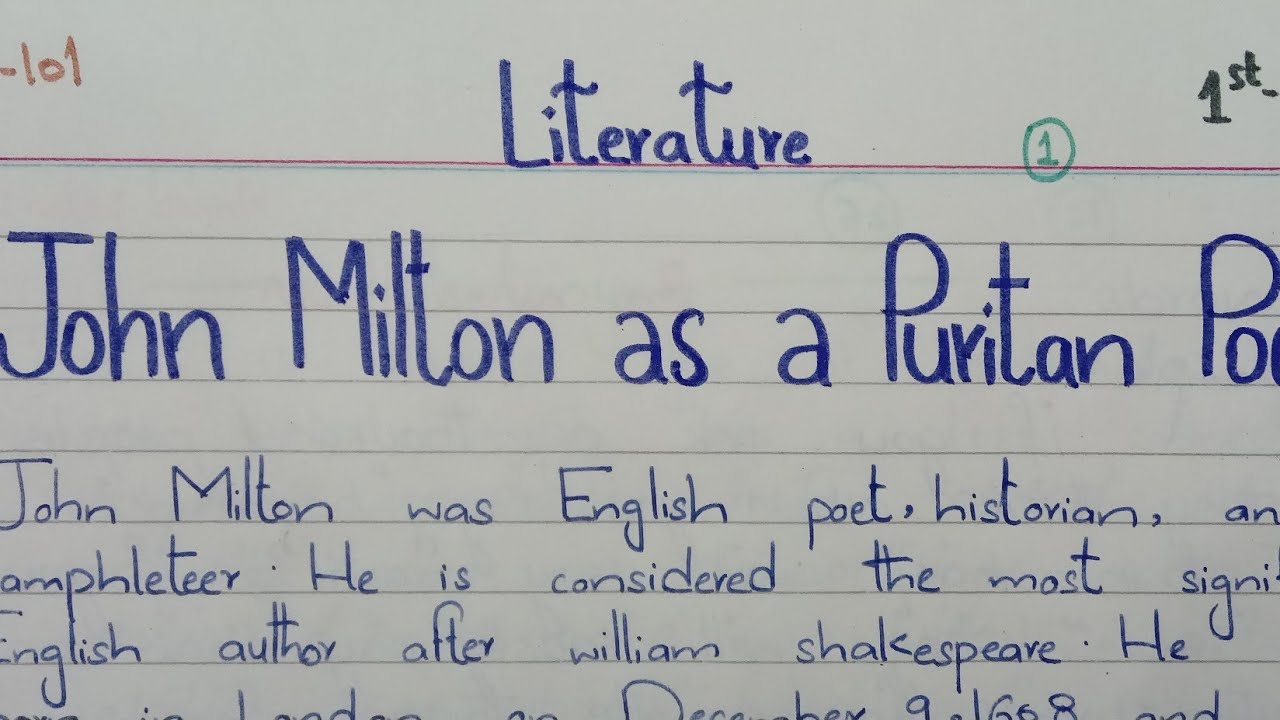 -101
Literature
1
1st-
John Milton as a Puritan
John Milton was English poet, historian,
amphleteer. He is considered the most
English author after william shakespeare. He
in London on December 9, 1608 and